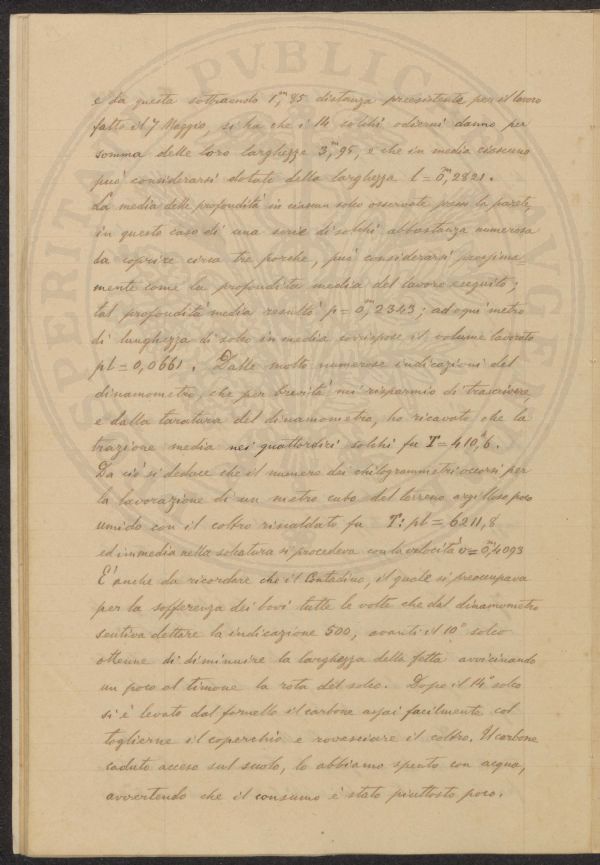 e da questa sottraendo 1,ᵐ85 distanza preesistente per il lavoro
fatto il 7 Maggio, si ha che i 14 solchi odierni danno per
somma delle loro larghezze 3,ᵐ95, e che in media ciascuno
può considerarsi dotato della larghezza l = 0,ᵐ2821.
La media delle profondità in ciascun solco osservate presso la parete,
in questo caso di una serie di solchi abbastanza numerosa
da coprire circa tre porche, può considerarsi prossima-
mente come la profondità media del lavoro eseguito;
tal profondità media resultò p = 0,ᵐ2343; ad ogni metro
di lunghezza di solco in media corrispose il volume lavorato
pl = 0,0661. Dalle molto numerose indicazioni del
dinamometro, che per brevità mi risparmio di trascrivere,
e dalla taratura del dinamometro, ho ricavato che la
trazione media nei quattordici solchi fu T = 410,ᵏ6.
Da ciò si deduce che il numero dei chilogrammetri occorsi per
la lavorazione di un metro cubo del terreno argilloso poco
umido con il coltro riscaldato fu T: pl = 6211,8
ed in media nella solcatura si procedeva con la velocità v = 0,ᵐ4093
E' anche da ricordare che il Contadino, il quale si preoccupava
per la sofferenza dei bovi tutte le volte che dal dinamometro
sentiva dettare la indicazione 500, avanti il 10° solco
ottenne di diminuire la larghezza della fetta avvicinando
un poco al timone la rota del solco. Dopo il 14° solco
si è levato dal fornello il carbone assai facilmente col
toglierne il coperchio e rovesciare il coltro. Il carbone
caduto acceso sul suolo, lo abbiamo spento con acqua,
avvertendo che il consumo è stato piuttosto poco.
PVBLICAE